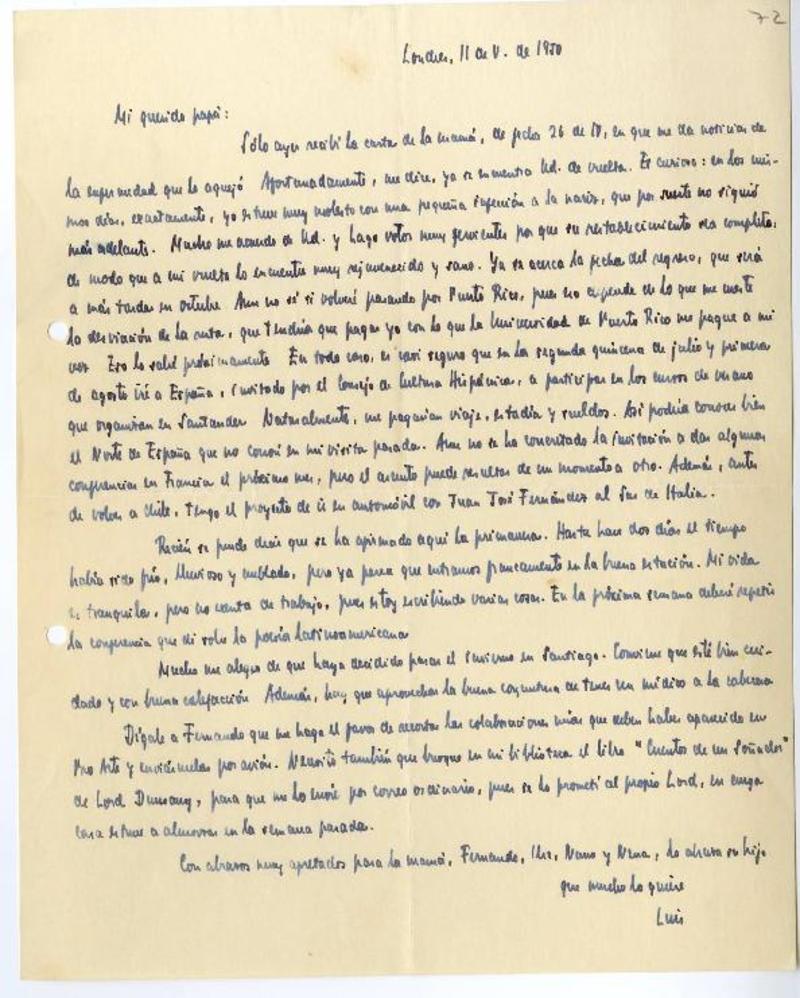 72
Londres, 11 de V. de 1950
Mi querido papá:
Sólo ayer recibí la carta de la mamá, de fecha 26 de IV, en que me da noticias de
la enfermedad que lo aquejó. Afortunadamente, me dice, ya se encuentra Ud. de vuelta. Es curioso: en los mis-
mos días, exactamente, yo estuve muy molesto con una pequeña infección a la nariz, que por suerte no siguió
más adelante. Mucho me acuerdo de Ud. y hago votos muy fervientes por que su restablecimiento sea completo,
de modo que a mi vuelta lo encuentre muy rejuvenecido y sano. Ya se acerca la fecha del regreso, que será
a más tardar en octubre. Aun no sé si volveré pasando por Puerto Rico, pues eso depende de lo que me cueste
la desviación de la ruta, que tendría que pagar yo con lo que la Universidad de Puerto Rico me pague a mi
vez. Eso lo sabré próximamente. En todo caso, es casi seguro que en la segunda quincena de julio y primera
de agosto iré a España, invitado por el Consejo de Cultura Hispánica, a participar en los cursos de verano
que organizan en Santander. Naturalmente, me pagarían viaje, estadía y sueldos. Así podría conocer bien
el Norte de España que no conocí en mi visita pasada. Aun no se ha concretado la invitación a dar algunas
conferencias en Francia el próximo mes, pero el asunto puede resultar de un momento a otro. Además, antes
de volver a Chile, tengo el proyecto de ir en automóvil con Juan José Fernández al Sur de Italia.
Recién se puede decir que se ha afirmado aquí la primavera. Hasta hace dos días el tiempo
había sido frío, lluvioso y nublado, pero ya parece que entramos francamente en la buena estación. Mi vida
es tranquila, pero no exenta de trabajo, pues estoy escribiendo varias cosas. En la próxima semana deberé repetir
la conferencia que di sobre la poesía latinoamericana.
Mucho me alegro de que haya decidido pasar el invierno en Santiago. Conviene que esté bien cui-
dado y con buena calefacción. Además, hay que aprovechar la buena coyuntura de tener un médico a la cabecera.
Dígale a Fernando que me haga el favor de recortar las colaboraciones mías que deben haber aparecido en
Pro Arte y enviármelas por avión. Necesito también que busque en mi biblioteca el libro "Cuentos de un Soñador"
de Lord Dunsany, para que me lo envíe por correo ordinario, pues se lo prometí al propio Lord, en cuya
casa estuve a almorzar en la semana pasada.
Con abrazos muy apretados para la mamá, Fernando, Nano y Nena, lo abraza su hijo
que mucho lo quiere
Luis